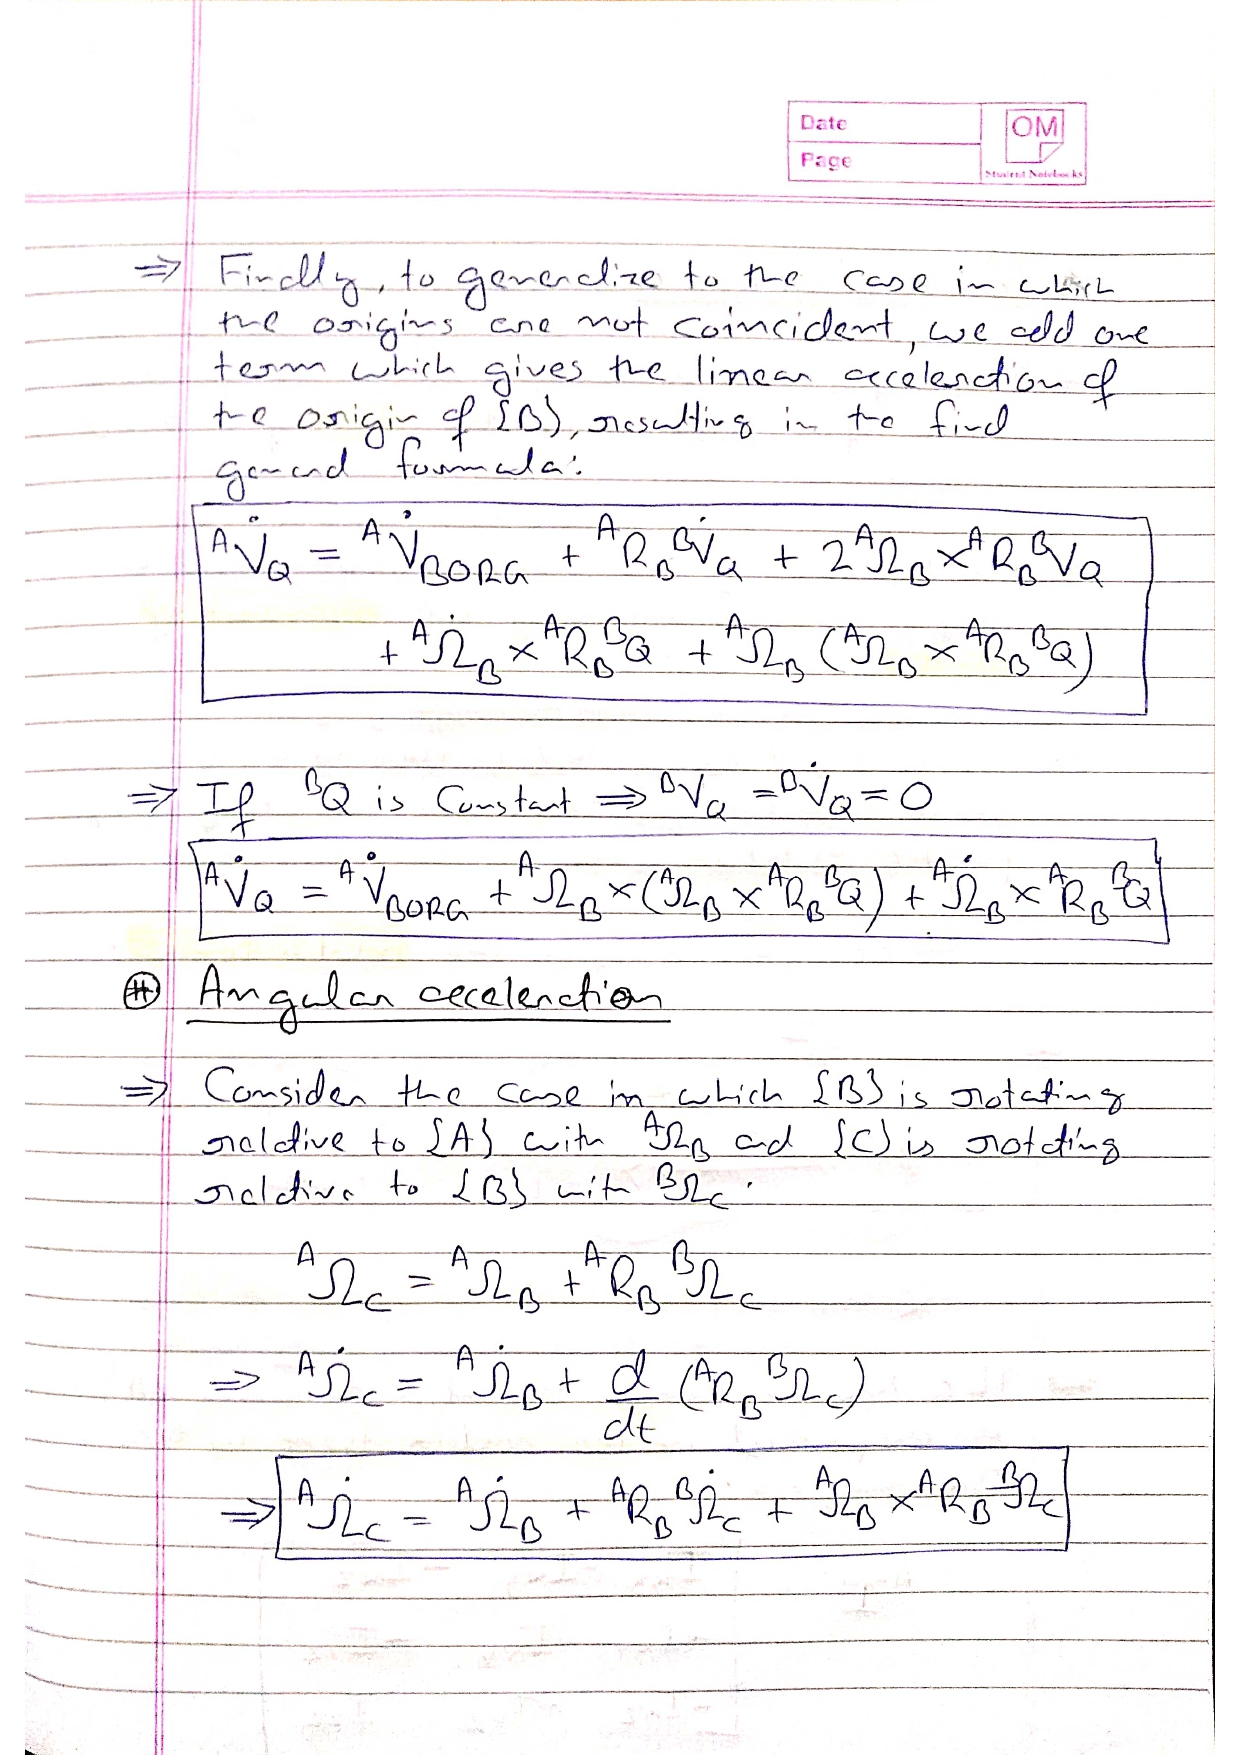 Date
Page
OM
Student Notebooks
⇒ Finally, to generalize to the case in which
the origins are not coincident, we add one
term which gives the linear acceleration of
the origin of {B}, resulting in the final
general formula:
ᴬV̇_Q = ᴬV̇_BORG + ᴬR_B ᴮV̇_Q + 2 ᴬΩ_B × ᴬR_B ᴮV_Q
+ ᴬΩ̇_B × ᴬR_B ᴮQ + ᴬΩ_B (ᴬΩ_B × ᴬR_B ᴮQ)
⇒ If ᴮQ is Constant ⇒ ᴮV_Q = ᴮV̇_Q = 0
ᴬV̇_Q = ᴬV̇_BORG + ᴬΩ_B × (ᴬΩ_B × ᴬR_B ᴮQ) + ᴬΩ̇_B × ᴬR_B ᴮQ
# Angular acceleration
⇒ Consider the case in which {B} is rotating
relative to {A} with ᴬΩ_B and {C} is rotating
relative to {B} with ᴮΩ_C.
ᴬΩ_C = ᴬΩ_B + ᴬR_B ᴮΩ_C
⇒ ᴬΩ̇_C = ᴬΩ̇_B + d/dt (ᴬR_B ᴮΩ_C)
⇒ ᴬΩ̇_C = ᴬΩ̇_B + ᴬR_B ᴮΩ̇_C + ᴬΩ_B × ᴬR_B ᴮΩ_C